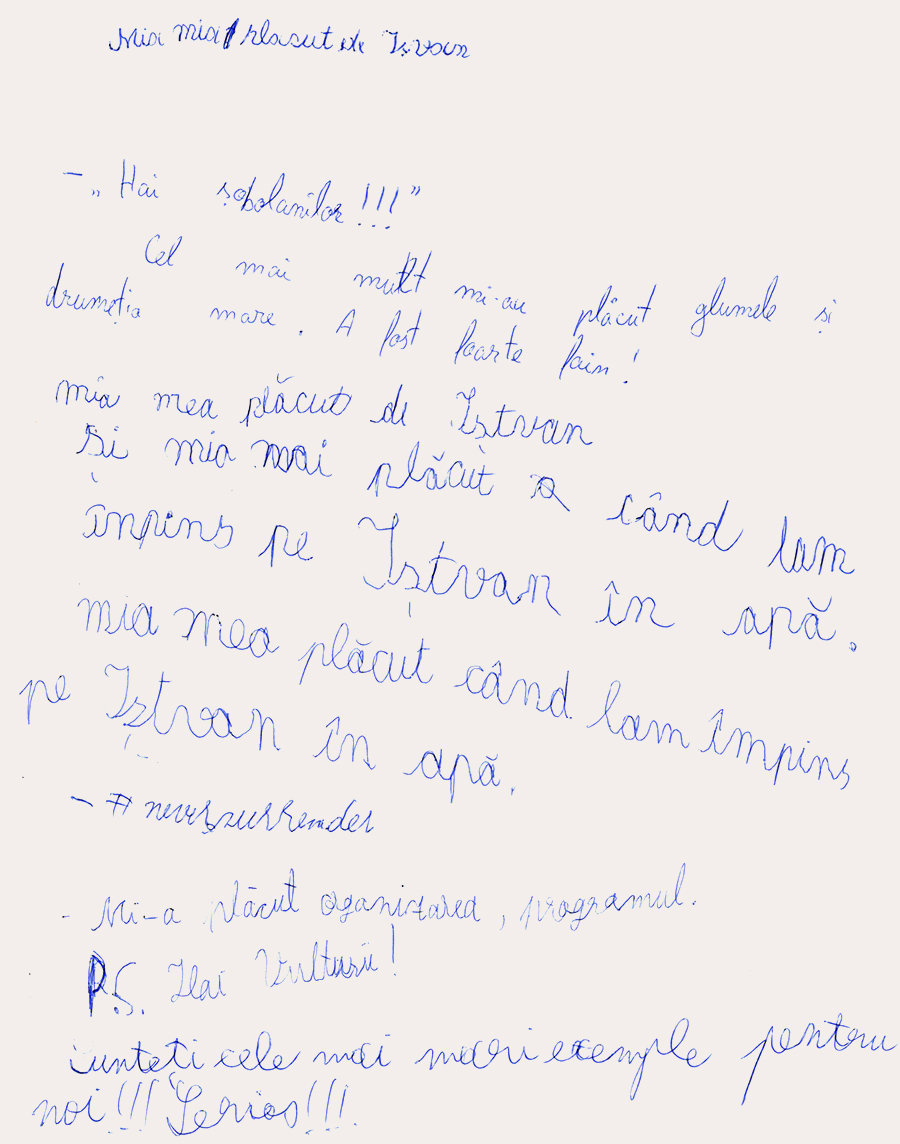 Mia mia plasut de Iștvan
– „Hai șobolanilor!!!”
Cel mai mult mi-au plăcut glumele și
drumeția mare. A fost foarte fain!
mia mea plăcut de Iștvan
și mia mai plăcut a când lam
înpins pe Iștvan în apă.
mia mea plăcut când lam împins
pe Iștvan în apă.
– #neversurrender
- Mi-a plăcut oganizarea, programul.
P.S. Hai Vulturii!
sunteți cele mai mari exemple pentru
noi!!! Serios!!!